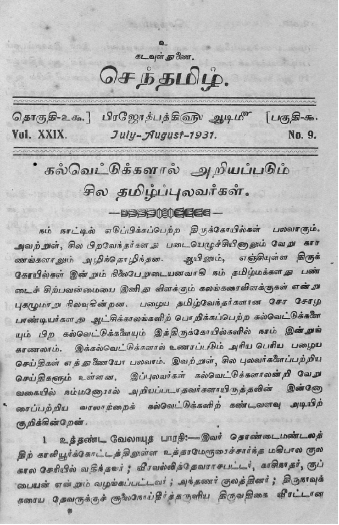 உ
கடவுள் துணை.
செந்தமிழ்.
தொகுதி-உ௯] பிரஜோற்பத்தி௵ ஆடி௴ [பகுதி-௯
Vol. XXIX. July-August-1931. No. 9.
கல்வெட்டுக்களால் அறியப்படும்
சில தமிழ்ப்புலவர்கள்.
நம் நாட்டில் எடுப்பிக்கப்பெற்ற திருக்கோயில்கள் பலவாகும்.
அவற்றுள், சில பிறவேந்தர்களது படையெழுச்சியினாலும் வேறு கார
ணங்களாலும் அழிந்தொழிந்தன. ஆயினும், எஞ்சியுள்ள திருக்
கோயில்கள் இன்றும் நிலைபேறுடையனவாகி நம் தமிழ்மக்களது பண்
டைச் சிற்பவன்மையை இனிது விளக்கும் கலங்கரைவிளக்குகள் என்று
புகழுமாறு நிலவுகின்றன. பழைய தமிழ்வேந்தர்களான சேர சோழ
பாண்டியர்களது ஆட்சிக்காலங்களிற் பொறிக்கப்பெற்ற கல்வெட்டுக்களை
யும் பிற கல்வெட்டுக்களையும் இத்திருக்கோயில்களில் நாம் இன்றுங்
காணலாம். இக்கல்வெட்டுக்களால் உணரப்படும் அரிய பெரிய பழைய
செய்திகள் எத்துணையோ பலவாம். இவற்றுள், சில புலவர்களைப்பற்றிய
செய்திகளும் உள்ளன. இப்புலவர்கள் கல்வெட்டுக்களாலன்றி வேறு
வகையில் நம்மனோரால் அறியப்படாதவர்களாயிருத்தலின் இன்னோ
ரைப்பற்றிய வரலாற்றைக் கல்வெட்டுக்களிற் கண்டவளவு அடியிற்
குறிக்கின்றேன்.
1 உத்தண்ட வேலாயுத பாரதி:—இவர் தொண்டைமண்டலத்
திற் காலியூர்க்கோட்டத்திலுள்ள உத்தரமேரூரைச்சார்ந்த
கால சேரியில் வதிந்தவர்;
பையன் என்றும் வழங்கப்பட்டவர்; அந்தணர் குலத்தினர்; திருநாவுக்
கரைய தேவருக்குச் சூலைநோய்தீர்த்தருளிய திருவதிகை வீரட்டான